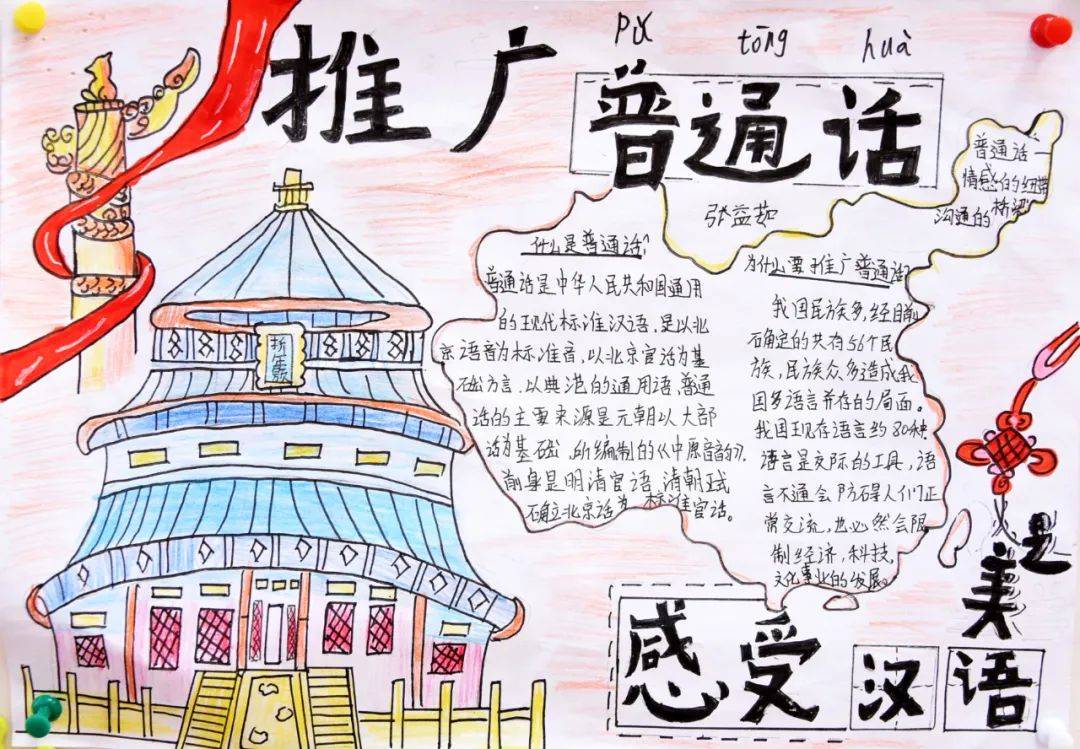 pǔ tōng huà
推广普通话
张益茹
普通话“一
情感的纽带
沟通的桥梁”
什么是普通话?
普通话是中华人民共和国通用
的现代标准汉语,是以北
京语音为标准音,以北京官话为基
础方言,以典范的通用语,普通
话的主要来源是元朝以大都
话为基础,所编制的《中原音韵》,
前身是明清官话,清朝或
确立北京话为标准官话。
为什么要推广普通话?
我国民族多,经目前
确定的共有56个民
族,民族众多造成我
国多语言并存的局面。
我国现存语言约80余种
语言是交际的工具,语
言不通会防碍人们正
常交流,也必然会限
制经济,科技,
文化事业的发展。
祈年殿
感受汉语
是
美